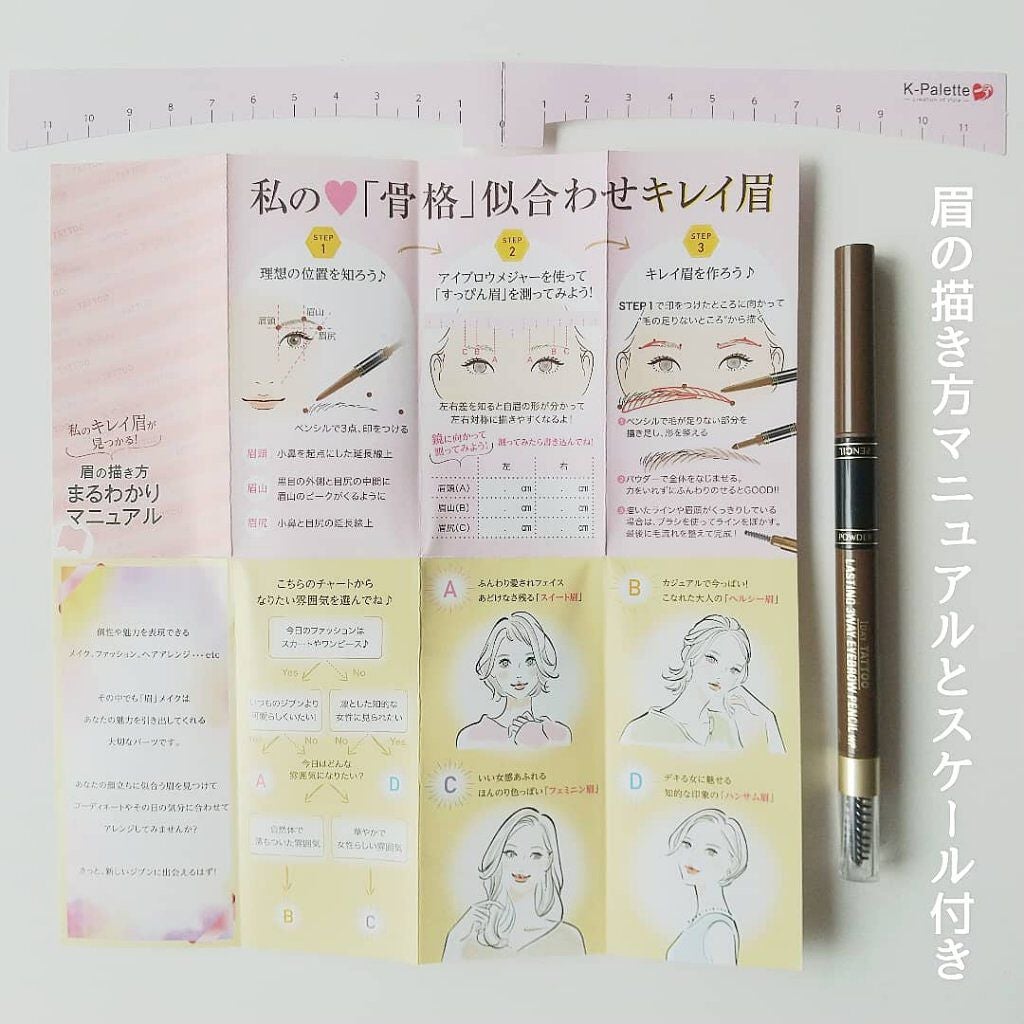 K-Palette
creation of style
11 10 9 8 7 6 5 4 3 2 1 0 1 2 3 4 5 6 7 8 9 10 11
私の♥「骨格」似合わせキレイ眉
私のキレイ眉が
見つかる!
眉の描き方
まるわかり
マニュアル
STEP
1
理想の位置を知ろう♪
眉頭
眉山
眉尻
ペンシルで3点、印をつける
眉頭 小鼻を起点にした延長線上
眉山 黒目の外側と目尻の中間に
眉山のピークがくるように
眉尻 小鼻と目尻の延長線上
STEP
2
アイブロウメジャーを使って
「すっぴん眉」を測ってみよう!
C B A A B C
左右差を知ると自眉の形が分かって
左右対称に描きやすくなるよ!
鏡に向かって
測ってみよう!
測ってみたら書き込んでね!
左 右
眉頭(A) . cm . cm
眉山(B) . cm . cm
眉尻(C) . cm . cm
STEP
3
キレイ眉を作ろう♪
STEP1で印をつけたところに向かって
"毛の足りないところ"から描く
❶ペンシルで毛が足りない部分を
描き足し、形を整える
❷パウダーで全体をなじませる。
力をいれずにふんわりのせるとGOOD!!
❸描いたラインや眉頭がくっきりしている
場合は、ブラシを使ってラインをぼかす。
最後に毛流れを整えて完成!
個性や魅力を表現できる
メイク、ファッション、ヘアアレンジ・・・etc
その中でも「眉」メイクは
あなたの魅力を引き出してくれる
大切なパーツです。
あなたの顔立ちに似合う眉を見つけて
コーディネートやその日の気分に合わせて
アレンジしてみませんか?
きっと、新しいジブンに出会えるはず!
こちらのチャートから
なりたい雰囲気を選んでね♪
今日のファッションは
スカートやワンピース♪
Yes No
いつものジブンより
可愛らしくいたい!
凛とした知的な
女性に見られたい
Yes No No Yes
A
今日はどんな
雰囲気になりたい?
D
自然体で
落ちついた雰囲気
華やかで
女性らしい雰囲気
B
C
A
ふんわり愛されフェイス
あどけなさ残る「スイート眉」
B
カジュアルで今っぽい!
こなれた大人の「ヘルシー眉」
C
いい女感あふれる
ほんのり色っぽい「フェミニン眉」
D
デキる女に魅せる
知的な印象の「ハンサム眉」
PENCIL
POWDER
1DAY TATTOO
LASTING 3WAY EYEBROW PENCIL WP
眉の描き方マニュアルとスケール付き